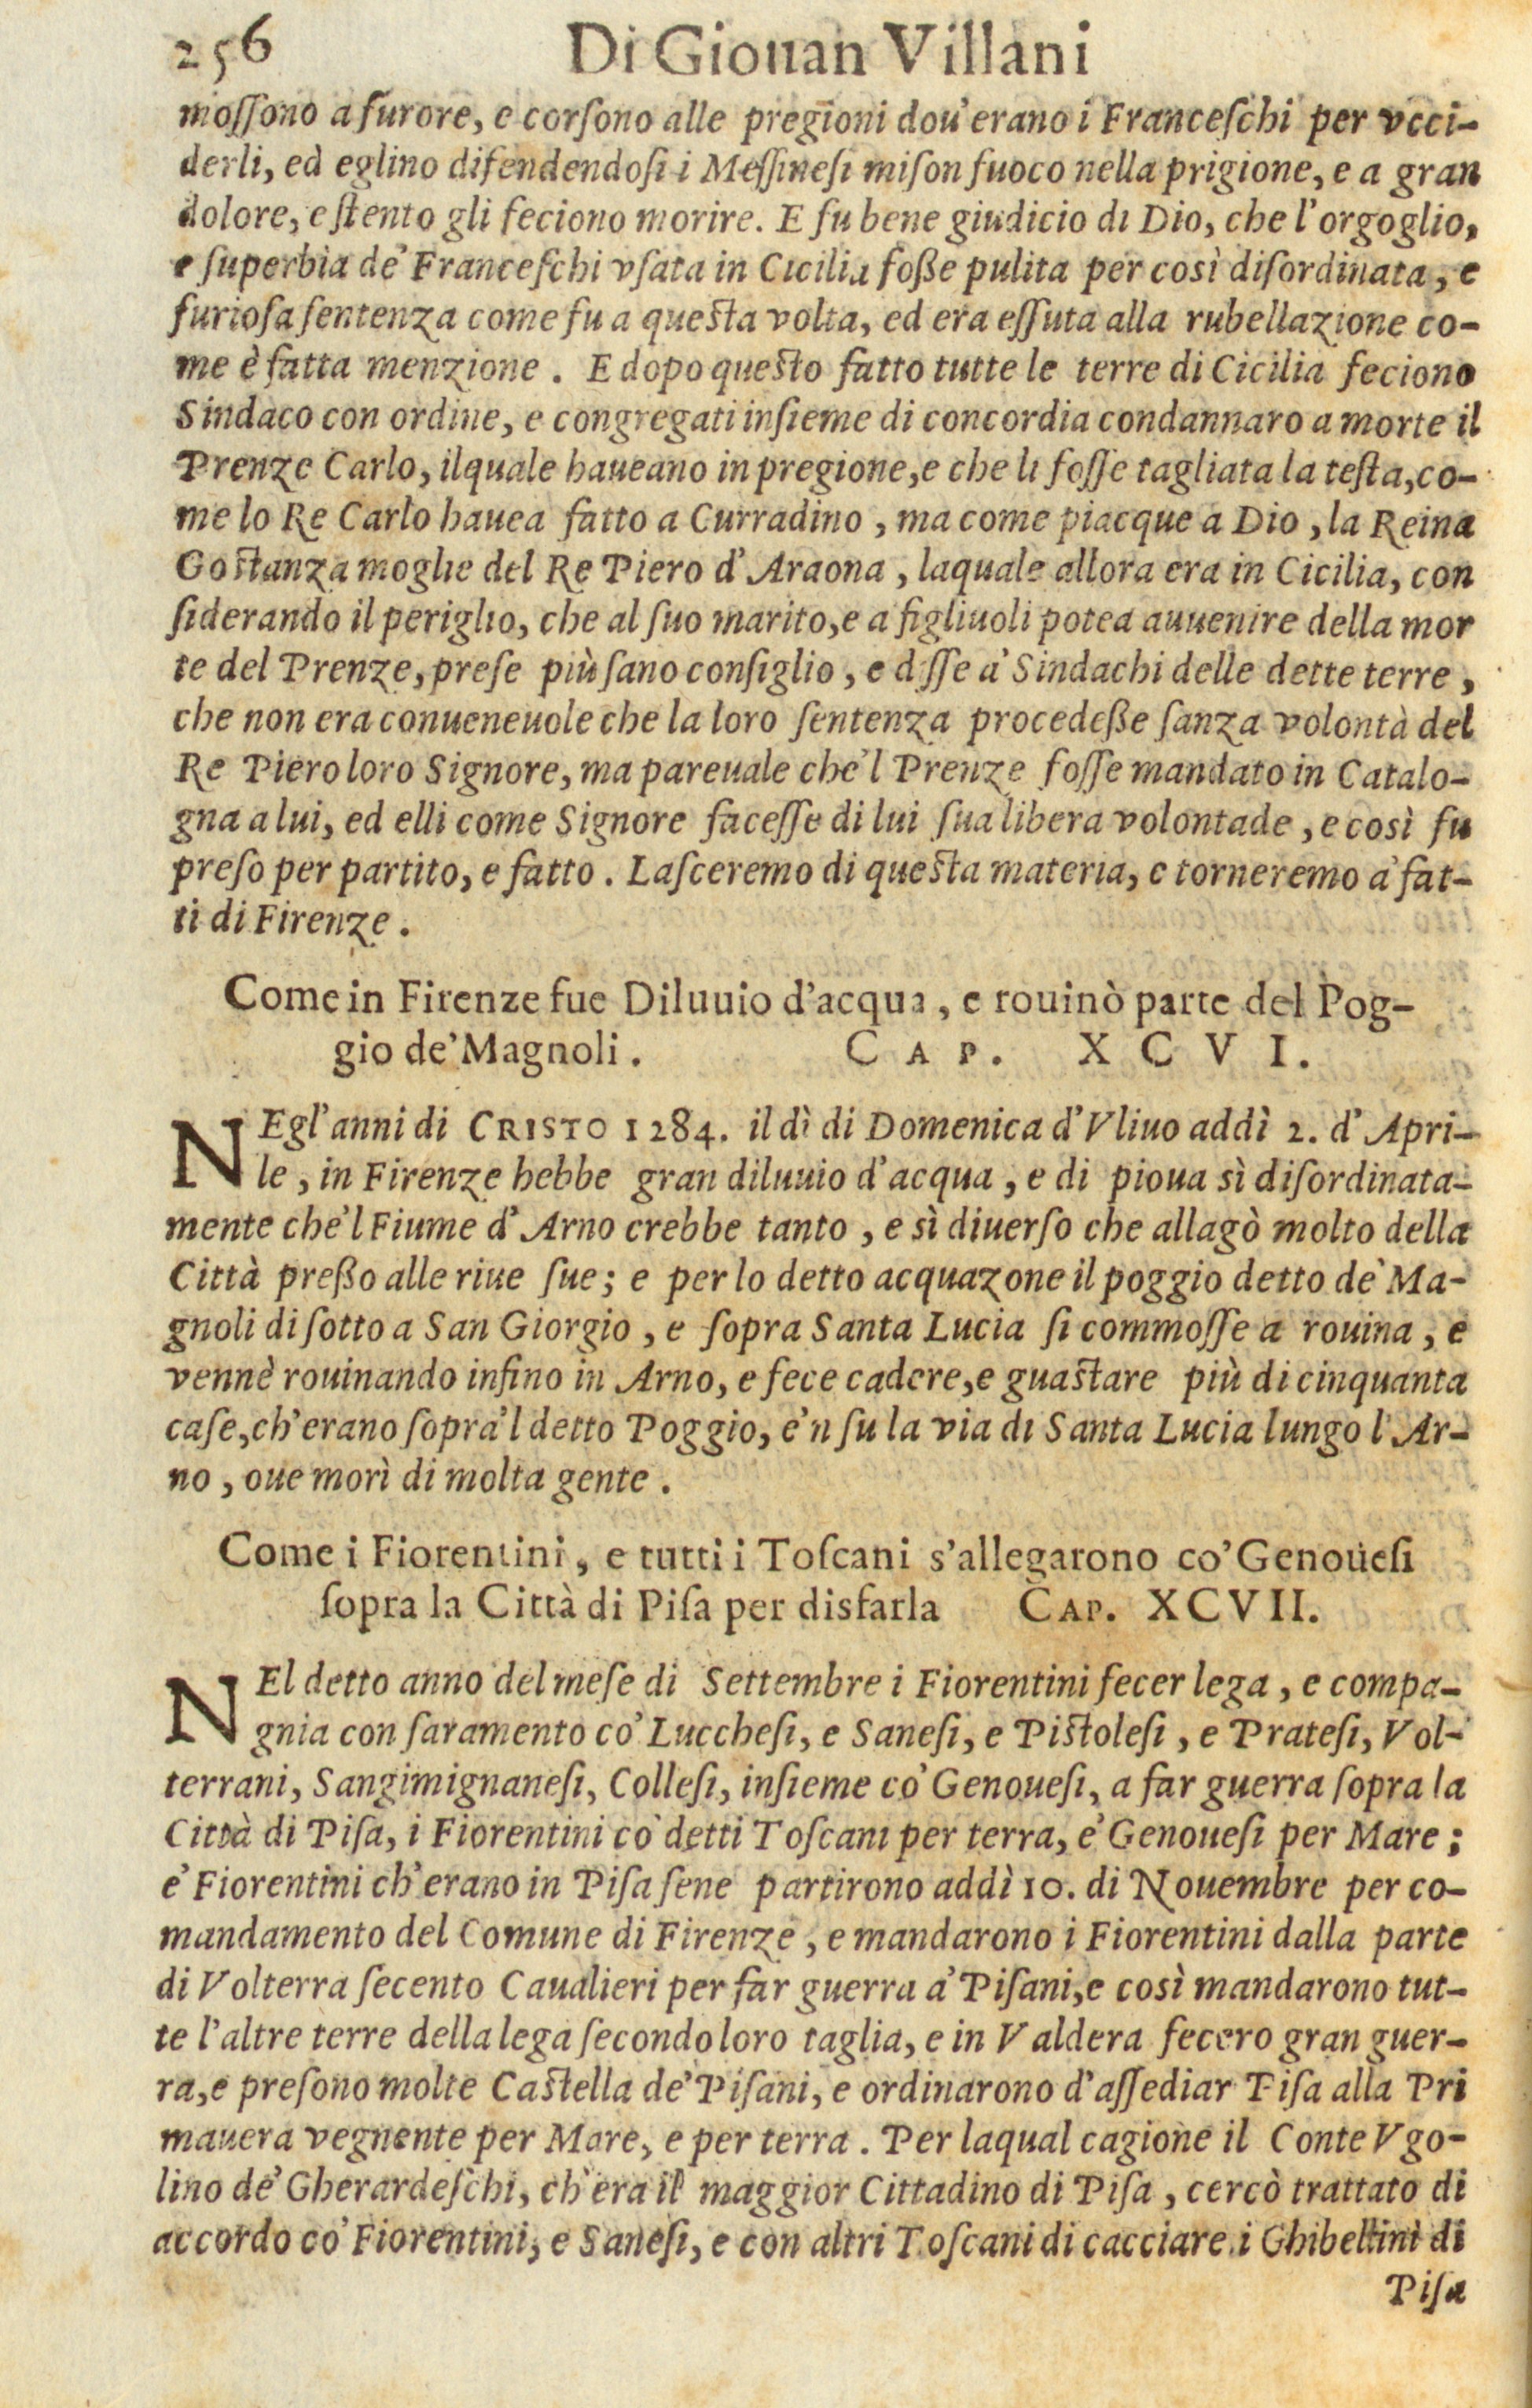 256 Di Giouan Villani
moſſono a furore, e corſono alle pregioni dou'erano i Franceſchi per vcci-
derli, ed eglino difendendoſi i Meſſineſi miſon fuoco nella prigione, e a gran
dolore, e ſtento gli feciono morire. E fu bene giudicio di Dio, che l'orgoglio,
e ſuperbia de' Franceſchi vſata in Cicilia foſſe pulita per così diſordinata, e
furioſa ſentenza come fu a queſta volta, ed era eſſuta alla rubellazione co-
me è fatta menzione. E dopo queſto fatto tutte le terre di Cicilia feciono
Sindaco con ordine, e congregati inſieme di concordia condannaro a morte il
Prenze Carlo, ilquale haueano in pregione, e che li foſſe tagliata la teſta, co-
me lo Re Carlo hauea fatto a Curradino, ma come piacque a Dio, la Reina
Goſtanza moglie del Re Piero d'Araona, laquale allora era in Cicilia, con
ſiderando il periglio, che al ſuo marito, e a figliuoli potea auuenire della mor
te del Prenze, preſe più ſano conſiglio, e diſſe a' Sindachi delle dette terre,
che non era conueneuole che la loro ſentenza procedeſſe ſanza volontà del
Re Piero loro Signore, ma pareuale che'l Prenze foſſe mandato in Catalo-
gna a lui, ed elli come Signore faceſſe di lui ſua libera volontade, e così fu
preſo per partito, e fatto. Laſceremo di queſta materia, e torneremo a' fat-
ti di Firenze.
Come in Firenze fue Diluuio d'acqua, e rouinò parte del Pog-
gio de' Magnoli. CAP. XCVI.
NEgl'anni di CRISTO 1284. il dì di Domenica d'Vliuo addì 2. d'Apri-
le, in Firenze hebbe gran diluuio d'acqua, e di pioua sì diſordinata-
mente che'l Fiume d'Arno crebbe tanto, e sì diuerſo che allagò molto della
Città preſſo alle riue ſue; e per lo detto acquazone il poggio detto de' Ma-
gnoli di ſotto a San Giorgio, e ſopra Santa Lucia ſi commoſſe a rouina, e
venne rouinando infino in Arno, e fece cadere, e guaſtare più di cinquanta
caſe, ch'erano ſopra'l detto Poggio, e'n ſu la via di Santa Lucia lungo l'Ar-
no, oue morì di molta gente.
Come i Fiorentini, e tutti i Toſcani s'allegarono co' Genoueſi
ſopra la Città di Piſa per disfarla CAP. XCVII.
NEl detto anno del meſe di Settembre i Fiorentini fecer lega, e compa-
gnia con ſaramento co' Luccheſi, e Saneſi, e Piſtoleſi, e Prateſi, Vol-
terrani, Sangimignaneſi, Colleſi, inſieme co' Genoueſi, a far guerra ſopra la
Città di Piſa, i Fiorentini co' detti Toſcani per terra, e' Genoueſi per Mare;
e' Fiorentini ch'erano in Piſa ſene partirono addì 10. di Nouembre per co-
mandamento del Comune di Firenze, e mandarono i Fiorentini dalla parte
di Volterra ſecento Caualieri per far guerra a' Piſani, e così mandarono tut-
te l'altre terre della lega ſecondo loro taglia, e in Valdera fecero gran guer-
ra, e preſono molte Caſtella de' Piſani, e ordinarono d'aſſediar Piſa alla Pri
mauera vegnente per Mare, e per terra. Per laqual cagione il Conte Vgo-
lino de' Gherardeſchi, ch'era il maggior Cittadino di Piſa, cercò trattato di
accordo co' Fiorentini, e Saneſi, e con altri Toſcani di cacciare i Ghibellini di
Piſa